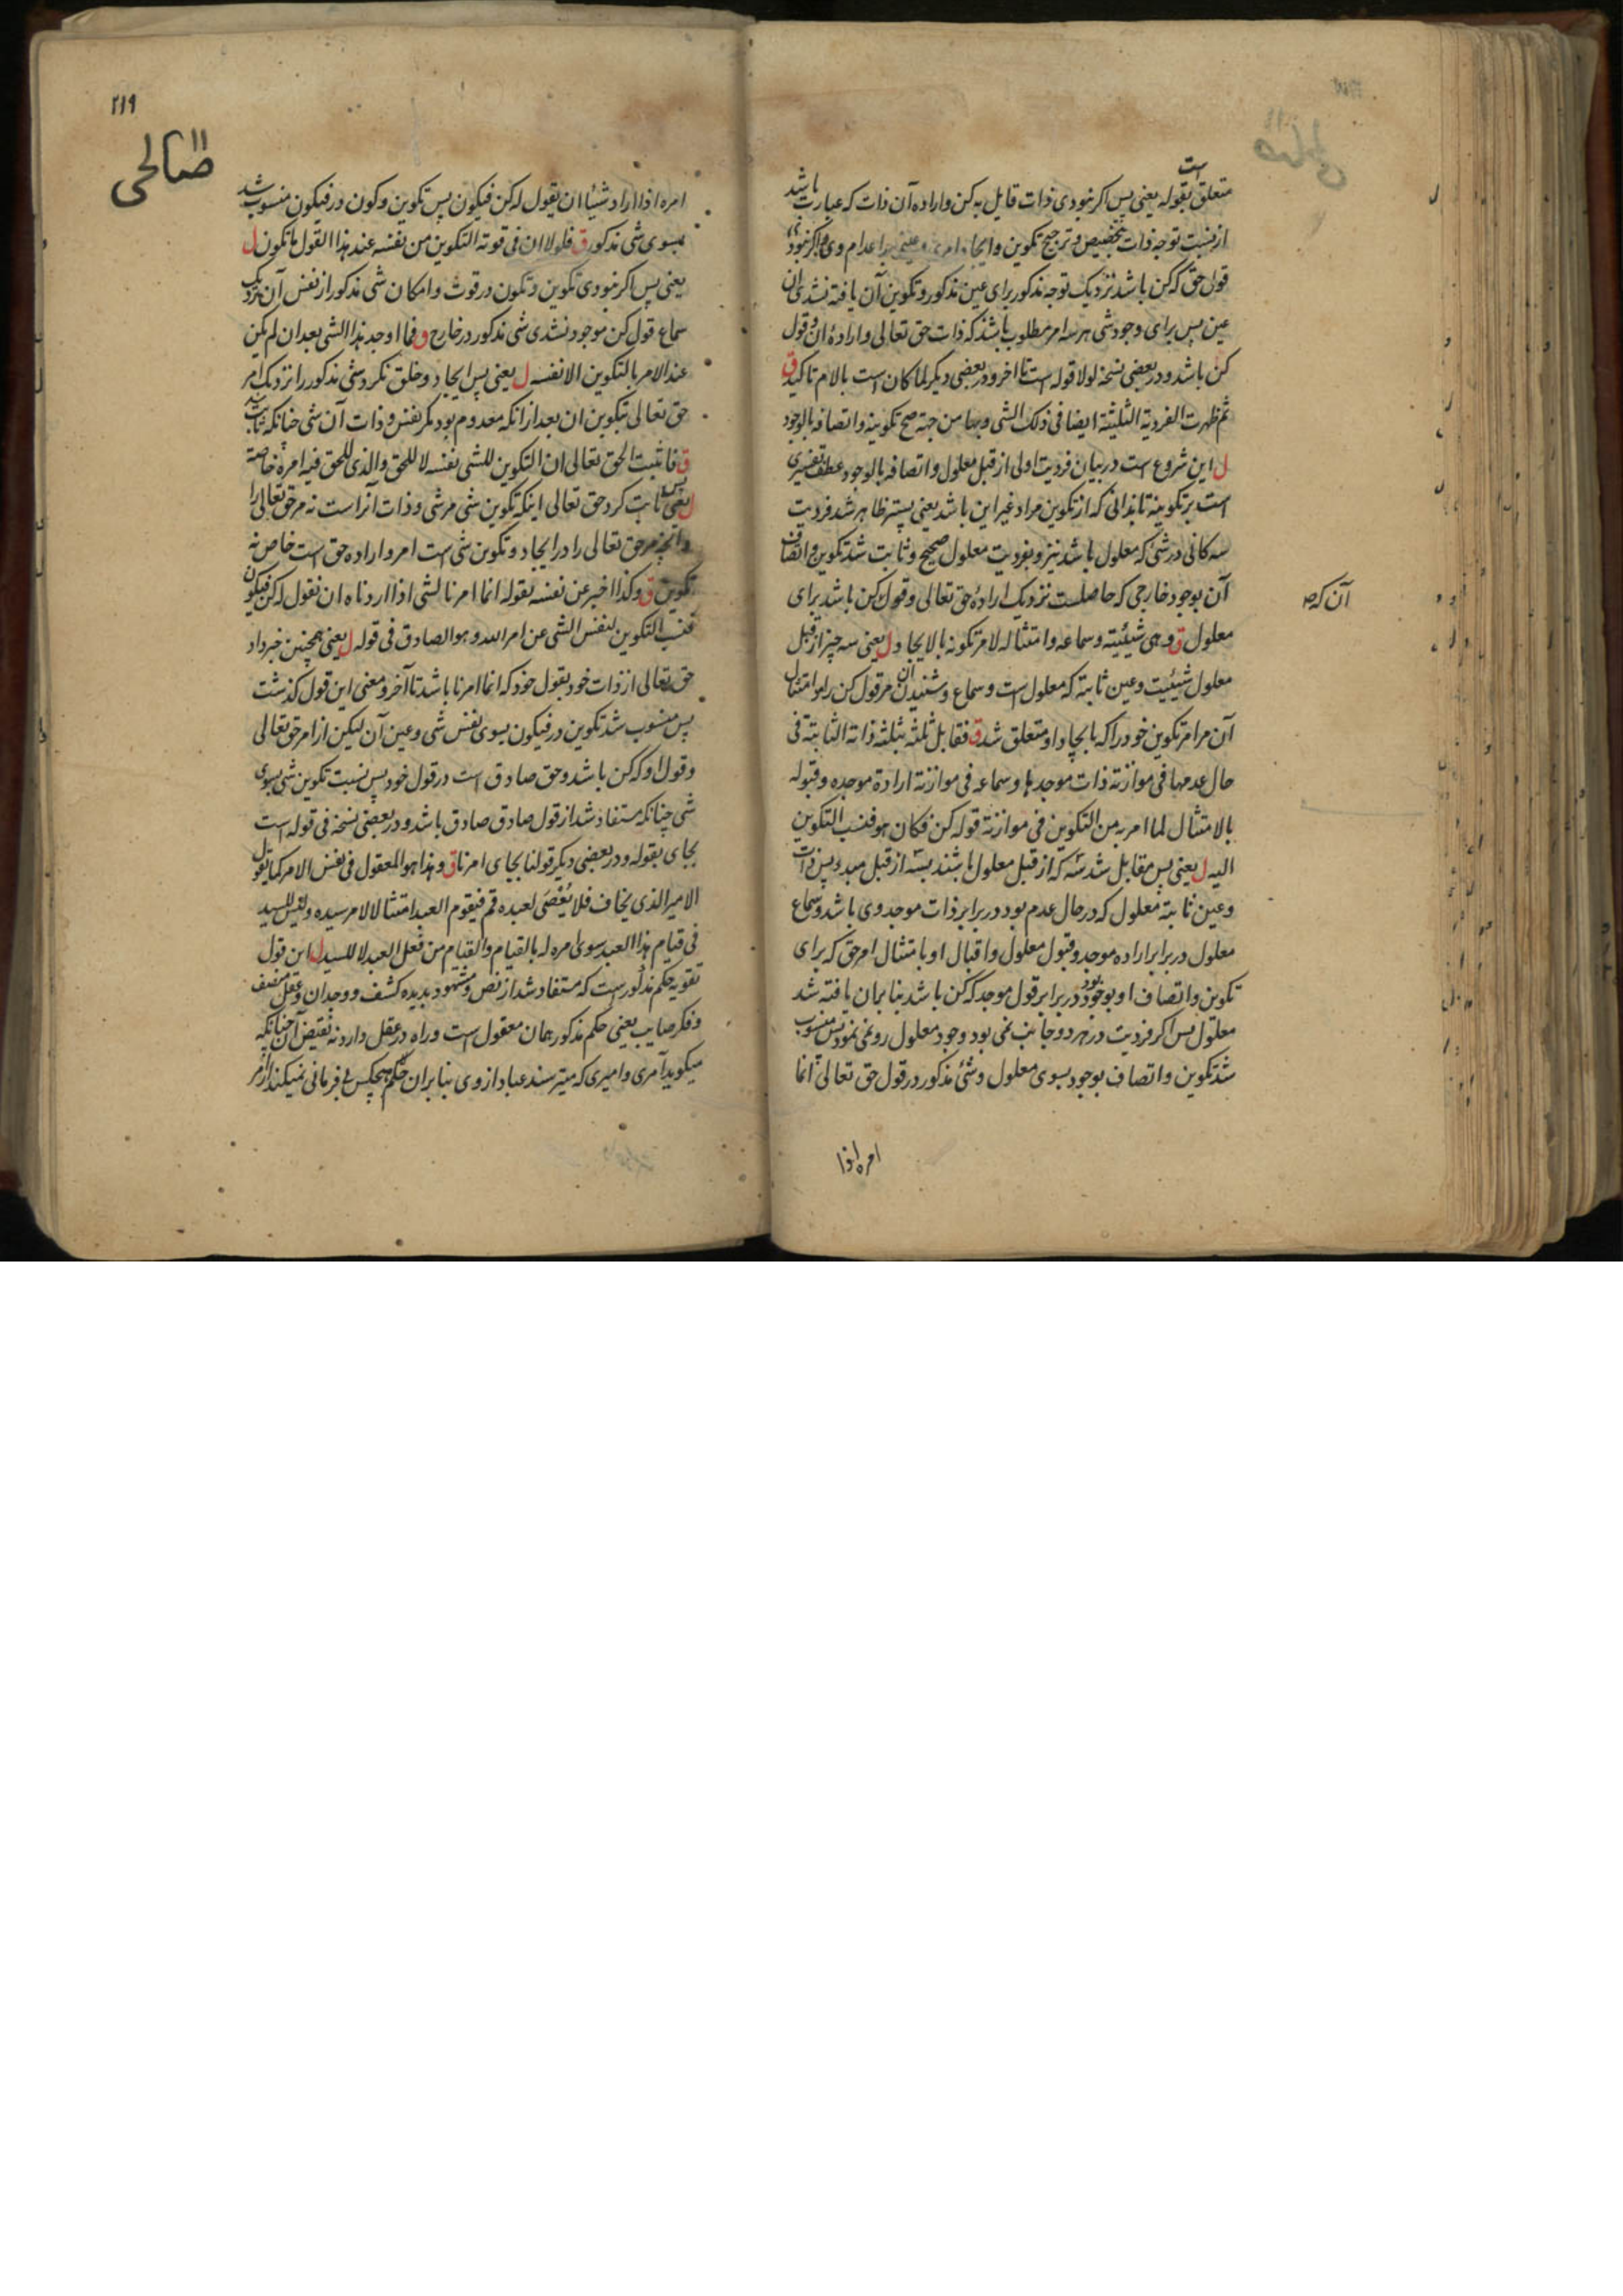 است
متعلق بقوله یعنی پس اکر نبودی ذات قایل به کن واراده آن ذات که عبارت باشد
از نسبت توجه ذات بتخصیص و ترجیح تکوین وایجاد امری اعدام وی واکر نبودی
قول حق که کن باشد نزدیک توجه مذکور برای عین مذکور و تکوین آن یافته نشدی آن
عین پس برای وجود شی هر سه امر مطلوب باشد که ذات حق تعالی واراده آن وقول
کن باشد ودر بعضی نسخه لولا قوله است تا اخر ودر بعضی دیکر لما کان است بالام تاکید ق
ثم ظهرت الفردیة الثلثیة ایضا فی ذلک الشی وبها من جهته صح تکوینه واتصافه بالوجود
ل این شروع است در بیان فردیت اولی از قبل معلول واتصافه بالوجود عطف تفسیری
است بر تکوینه تا بدانی که از تکوین مراد غیر این باشد یعنی پستر ظاهر شد فردیت
سه کانی در شئ که معلول باشد نیز وبفردیت معلول صحیح وثابت شد تکوین واتصاف
آن بوجود خارجی که حاصلست نزدیک ارادۀ حق تعالی وقول کن باشد برای
آن که صہ
معلول ق وهی شیئیته وسماعه وامتثاله لامر تکونه بالایجاد ل یعنی سه چیز از قبل
معلول شیئیت وعین ثابته که معلول است وسماع وشنیدن آن مر قول کن را وامتثال
آن مر امر تکوین خود را که بایجاد او متعلق شد ق فقابل ثلثه بثلثة ذاته الثابتة فی
حال عدمها فی موازنة ذات موجدها وسماعه فی موازنة ارادة موجده وقبوله
بالامتثال لما امر به من التکوین فی موازنة قوله کن فکان هو فنسب التکوین
الیه ل یعنی پس مقابل شد سه که از قبل معلول باشند بسه از قبل مبدء پس ذات
وعین ثابته معلول که در حال عدم بود در برابر ذات موجد وی باشد وسماع
معلول در برابر اراده موجد وقبول معلول واقبال او بامتثال امر حق که برای
تکوین واتصاف او بوجود بود در برابر قول موجد که کن باشد بنابران یافته شد
معلول پس اکر فردیت در هر دو جانب نمی بود وجود معلول رو نمی نمود پس منسوب
شد تکوین واتصاف بوجود بسوی معلول وشئ مذکور در قول حق تعالی انما
امره اذا
۲۱۹
صالحی
امره اذا اراد شیئا ان یقول له کن فیکون پس تکوین وکون در فیکون منسوب شد
بسوی شی مذکور ق فلولا ان فی قوته التکوین من نفسه عند هذا القول ما تکون ل
یعنی پس اکر نبودی تکوین وتکون در قوت وامکان شی مذکور از نفس آن نزدیک
سماع قول کن موجود نشدی شی مذکور در خارج ق فما اوجد هذا الشی بعد ان لم یکن
عند الامر بالتکوین الا نفسه ل یعنی پس ایجاد وخلق نکرد شی مذکور را نزدیک امر
حق تعالی بتکوین ان بعد از انکه معدوم بود مکر نفس وذات آن شی چنانکه ثابت شد
ق فاثبت الحق تعالی ان التکوین للشی نفسه لا للحق والذی للحق فیه امره خاصة
ل یعنی پس ثابت کرد حق تعالی اینکه تکوین شی مر شی وذات آنرا است نه مر حق تعالی را
وآنچه مر حق تعالی را در ایجاد وتکوین شی است امر واراده حق است خاص نه
تکوین ق وکذا اخبر عن نفسه بقوله انما امرنا لشی اذا اردناه ان نقول له کن فیکون
فنسب التکوین لنفس الشی عن امر الله وهو الصادق فی قوله ل یعنی همچنین خبر داد
حق تعالی از ذات خود بقول خود که انما امرنا باشد تا آخر ومعنی این قول کذشت
پس منسوب شد تکوین در فیکون بسوی نفس شی وعین آن لیکن از امر حق تعالی
وقول او که کن باشد وحق صادق است در قول خود پس نسبت تکوین شی بسوی
شی چنانکه مستفاد شد از قول صادق صادق باشد ودر بعضی نسخه فی قوله است
بجای بقوله ودر بعضی دیکر قولنا بجای امرنا ق وهذا هو المعقول فی نفس الامر کما یقول
الامیر الذی یخاف فلا یُعْصَی لعبده قم فیقوم العبد امتثالا لامر سیده ولیس للسید
فی قیام هذا العبد سوی امره له بالقیام والقیام من فعل العبد لا للسید ل این قول
تقویه حکم مذکور است که مستفاد شد از نص ومشهود بدیده کشف ووجدان وعقل منصف
وفکر صایب یعنی حکم مذکور همان معقول است وراه در عقل دارد نه نقیض آن چنانکه
میکوید آمری وامیری که میترسند عباد از وی بنابران حکم هیچکس بی فرمانی نمیکند از امر